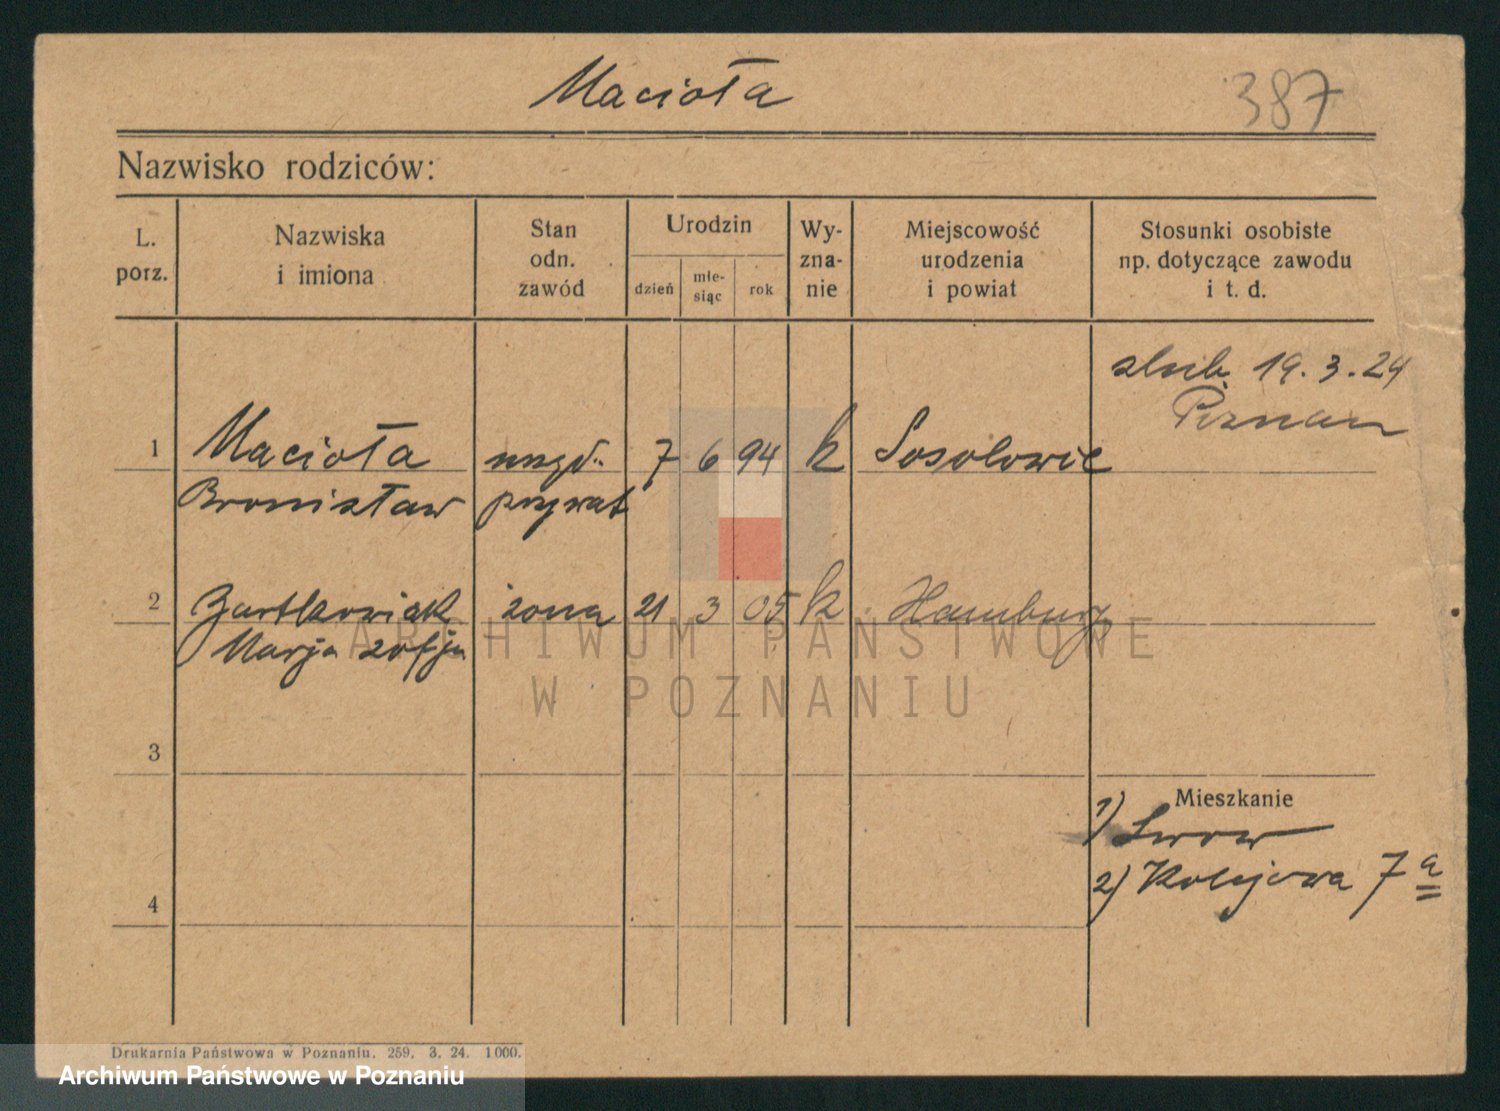 Macioła
387
Nazwisko rodziców:
L. porz.
Nazwiska i imiona
Stan odn. zawód
Urodzin
dzień
mie-
siąc
rok
Wy-
zna-
nie
Miejscowość urodzenia i powiat
Stosunki osobiste np. dotyczące zawodu i t. d.
ślub. 19. 3. 24
Poznań
1 Macioła 7 6 94 k
Bronisław prywat
2 żona 21 3 05 k Hamburg
Marja Zofja
ARCHIWUM PAŃSTWOWE
W POZNANIU
3
Mieszkanie
1) Lwow
2) Kolejowa 7 a
4
Drukarnia Państwowa w Poznaniu. 259. 3. 24. 1000.
Archiwum Państwowe w Poznaniu